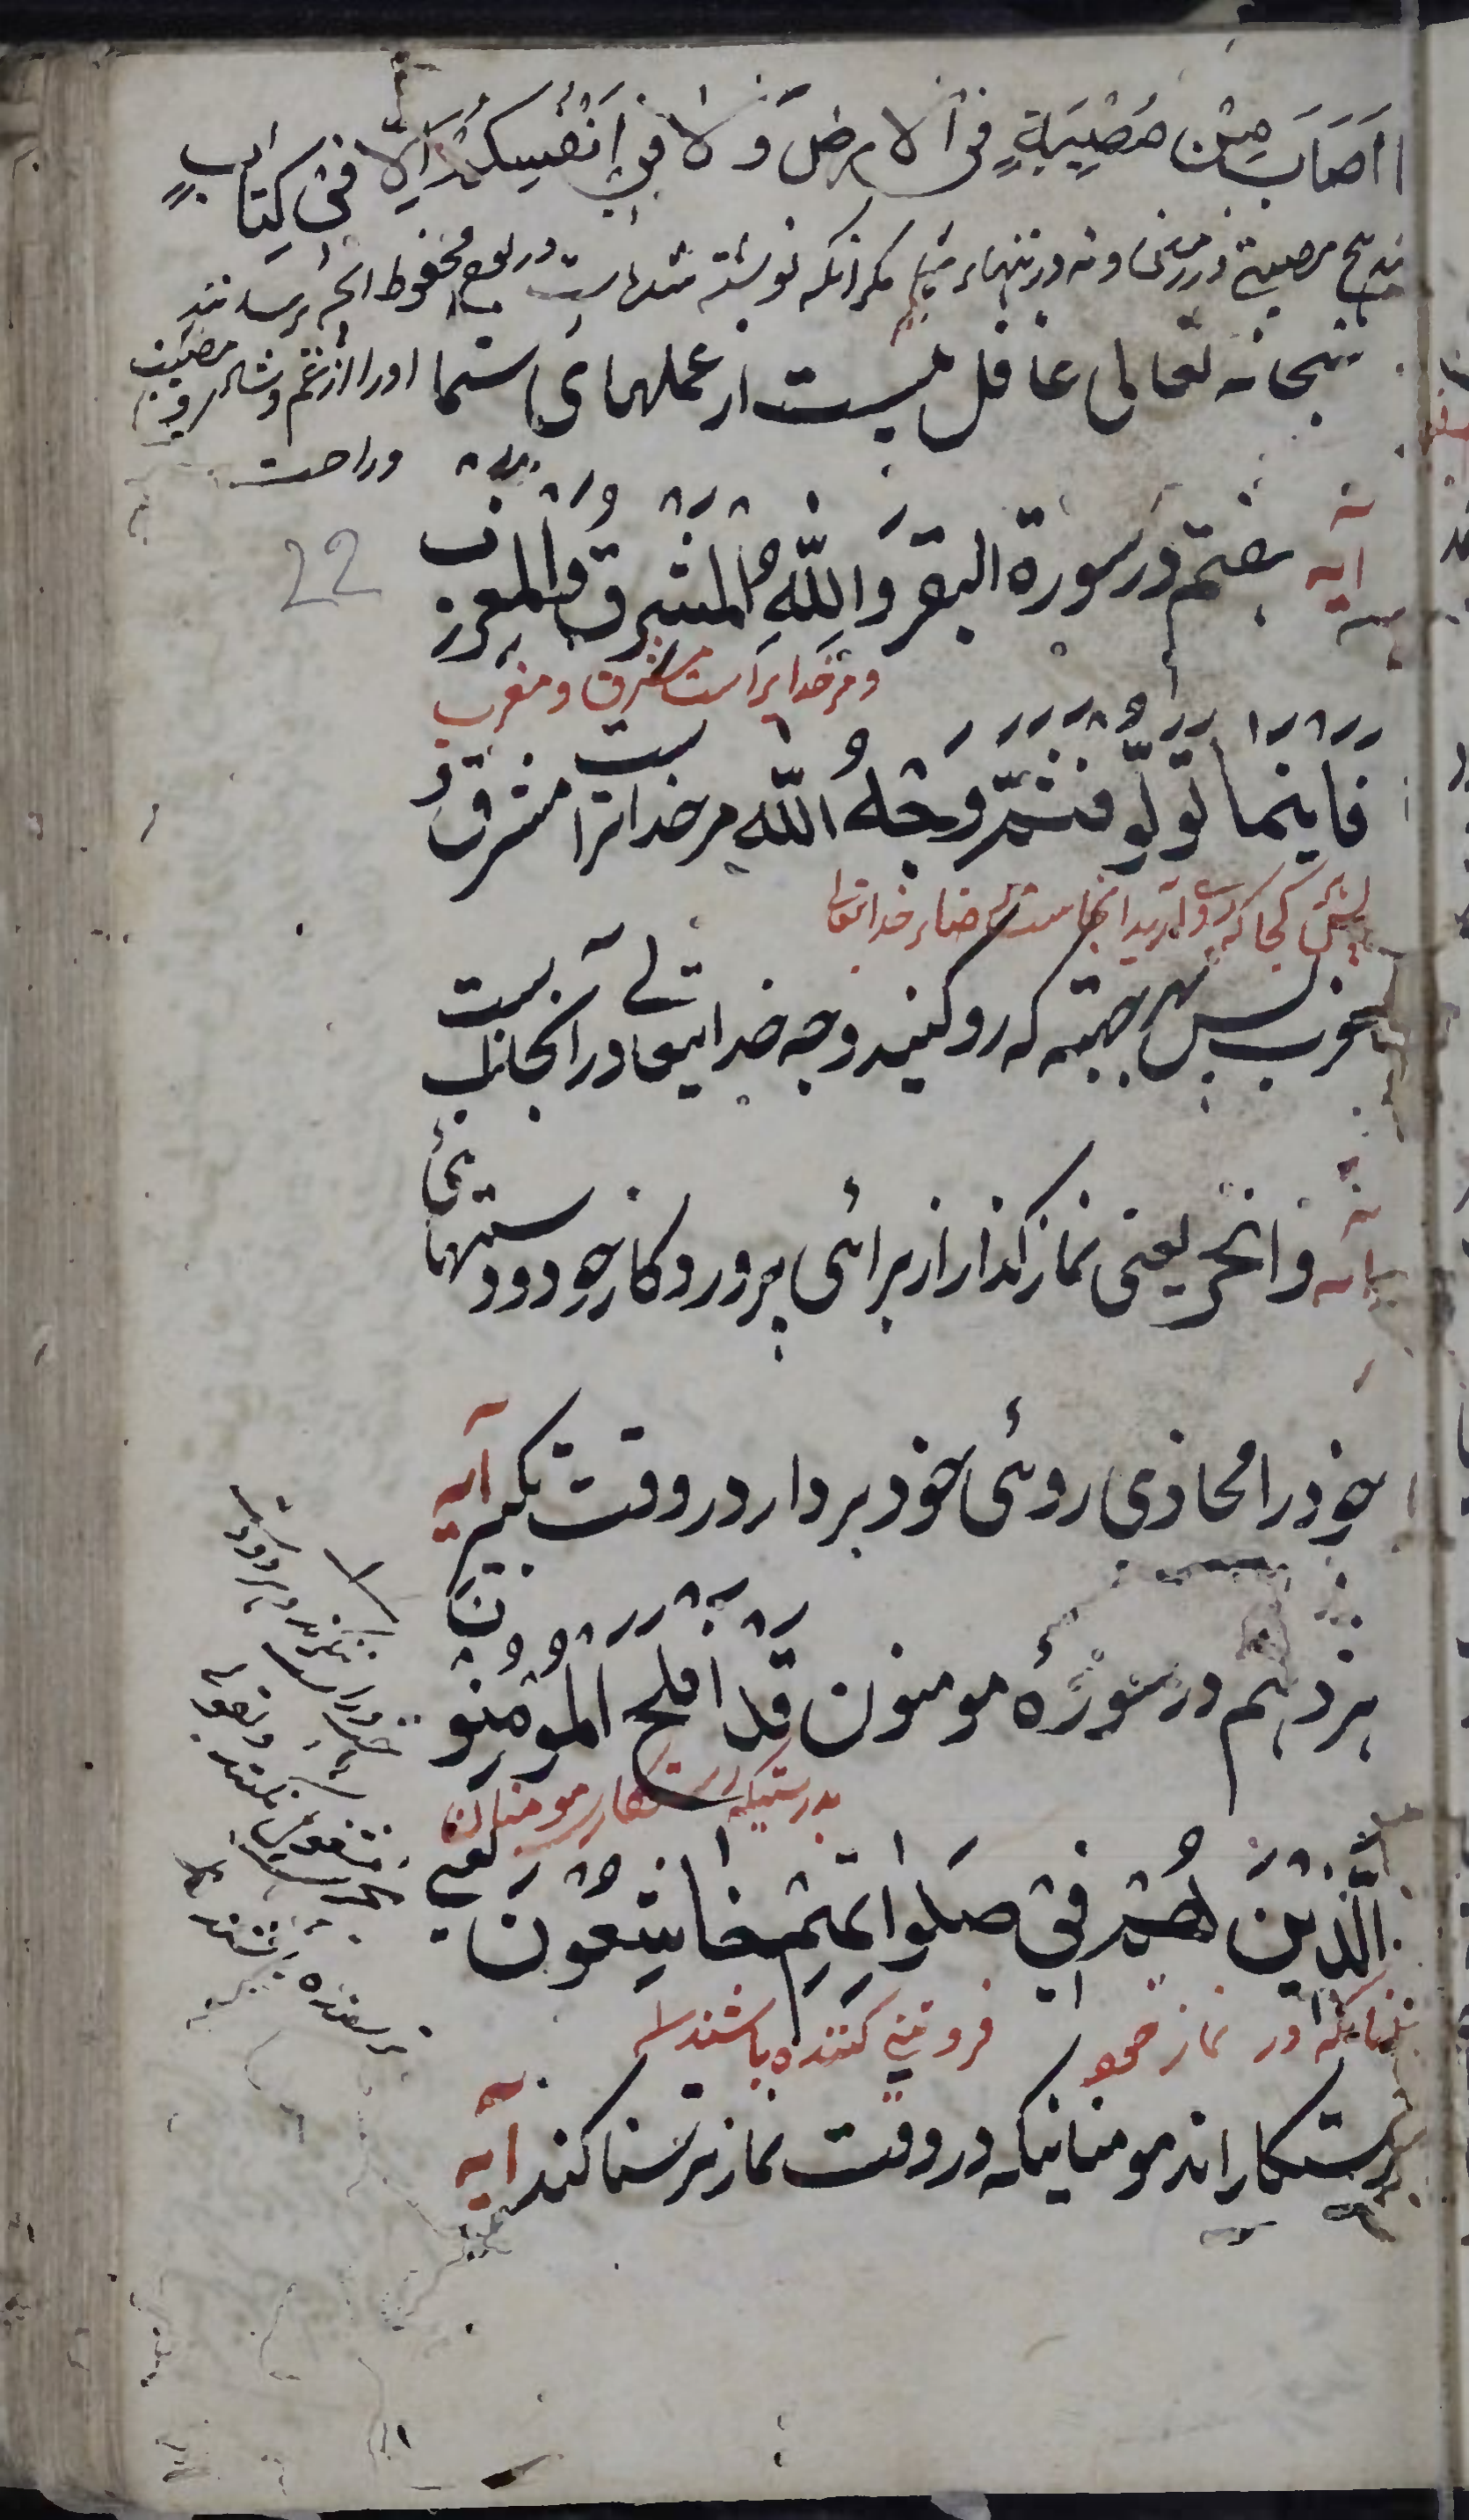 ااَصَابَ مِنْ مُصِيْبَةٍ فِى الْاَرْضِ وَلَا فِىْ اَنْفُسِكُمْ اِلَّا فِىْ كِتَابٍ
هیچ مصیبتی در زمین و نه در تنهاء شما مکر انکه نوشته شده است در لوح محفوظ انچه برسانند
سبحانه تعالی غافل نیست از عملهای شما
اورا از غم و شادی و مصیبت
وراحت
22
آیه
بفتم در سورة البقر وَلِلّٰهِ الْمَشْرِقُ وَالْمَغْرِبُ
و مر خدایراست مشرق و مغرب
فَاَيْنَمَا تُوَلُّوْ فَثَمَّ وَجْهُ اللّٰهِ مر خدایراست مشرق و
پس هر کجا که روی آرید انجاست رضاء خدایتعالی
مغرب پس بهر جهتی که رو کنید وجه خدایتعالی در آنجانب است
آیه وانحر یعنی نماز کذار از برائی پروردکار خود و دستهائی
خود را محاذی روئی خود بردار در وقت تکبیر آیه
هزدهم در سورهٔ مومنون قَدْ اَفْلَحَ الْمُؤْمِنُوْنَ
بدرستیکه رستکارند مومنان
الَّذِيْنَ هُمْ فِيْ صَلٰوتِهِمْ خَاشِعُوْنَ یعنی
آنانکه در نماز خود فروتنی کننده باشند
رستکار اند مومنانیکه در وقت نماز ترسناکند آیه
ترسنده باشند